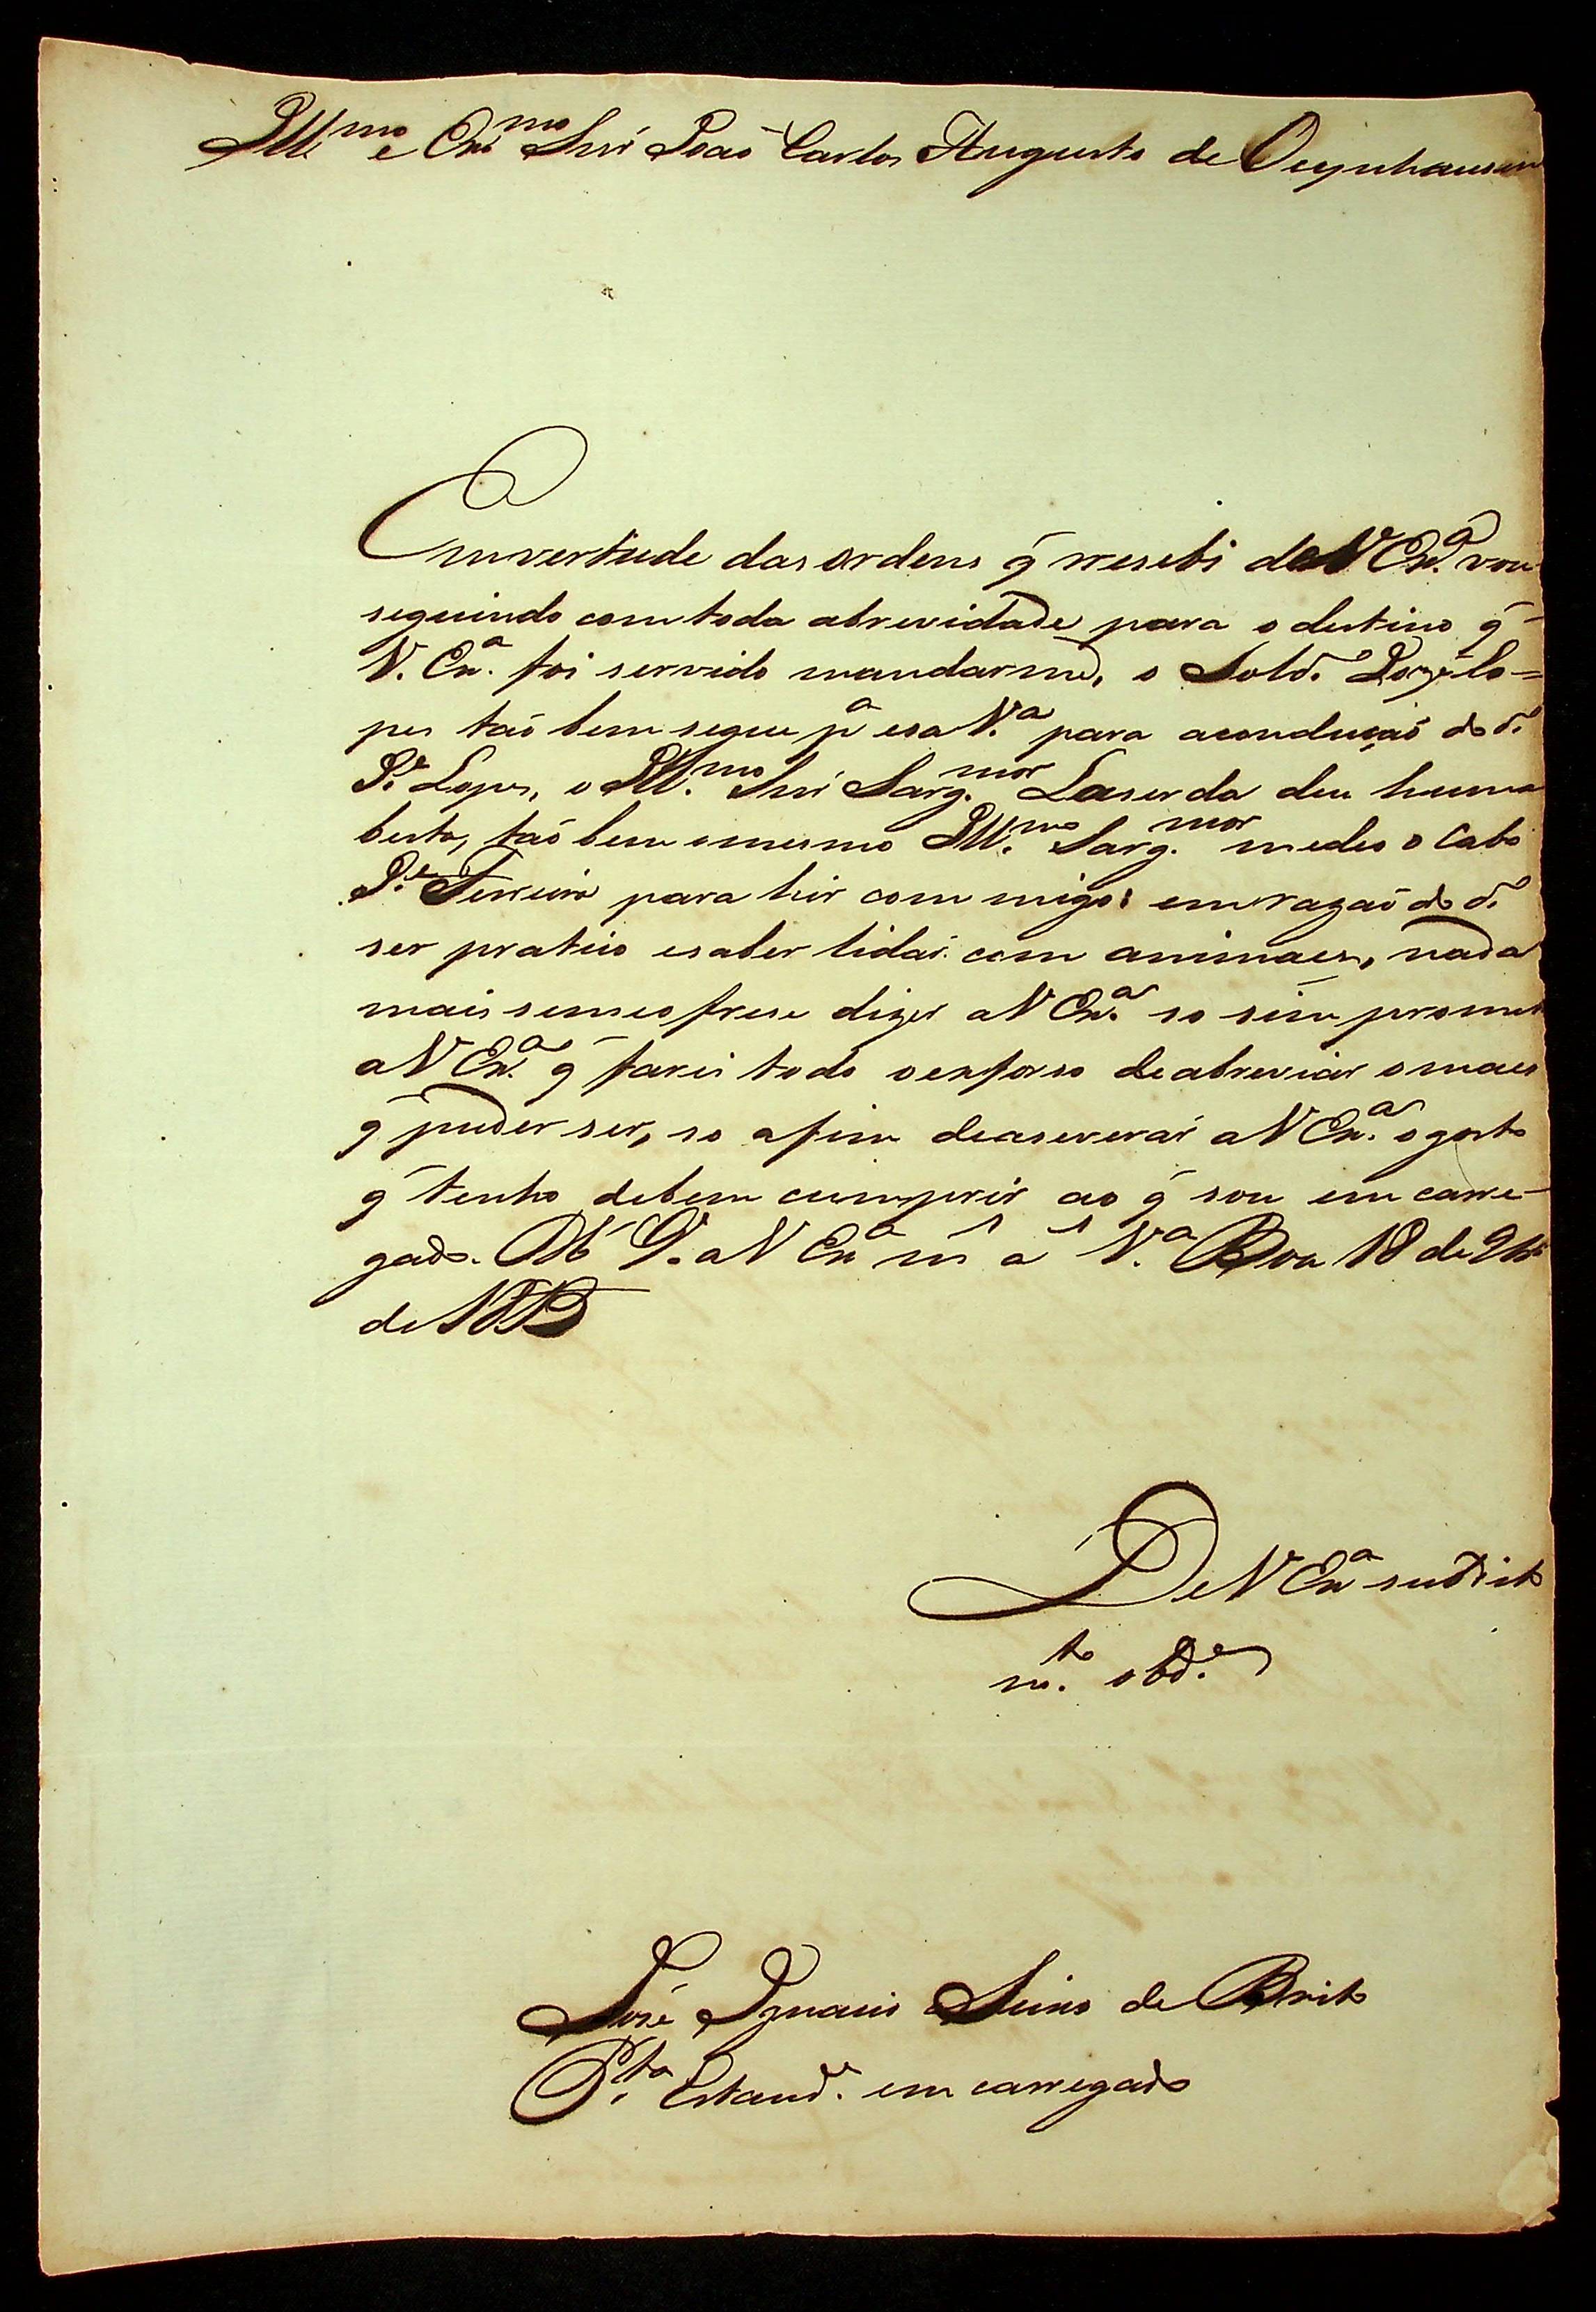 Ill.mo e Ex.mo Snr João Carlos Augusto de Oeynhausen
Emvertude das ordens q̃ rresebi de V Ex.a vou
seguindo com toda abrevidade para o destino q̃
V. Ex.a foi servido mandarme, o Sold.o Jozé Lo=
pes taõ bem segue p.a esa V.a para aconduçaõ do d.o
P.e Lopes, o Ill.mo Snr Sarg.mor Laserda deu huma
besta, taõ bem omesmo Ill.mo Sarg.mor medeo o Cabo
J.e Ferreira para hir com migo: em razaõ do d.o
ser pratico esaber lidar com animaes, nada
mais semeofrese dizer a V Ex.a so sim promet
a V Ex.a q̃ farei todo oexforso deabreviar omaes
q̃ puder ser, so afim deaseverar a V Ex.a ogosto
q̃ tenho debem cumprir ao q̃ sou em carre-
gado. D.s G.e a V Ex.a m.s a.s V.a Boa 18 de 9br.o
de
De V Ex.a sudito
m.to obd.e
José Ignacio de Brito
P.ta Estand.e em carregado